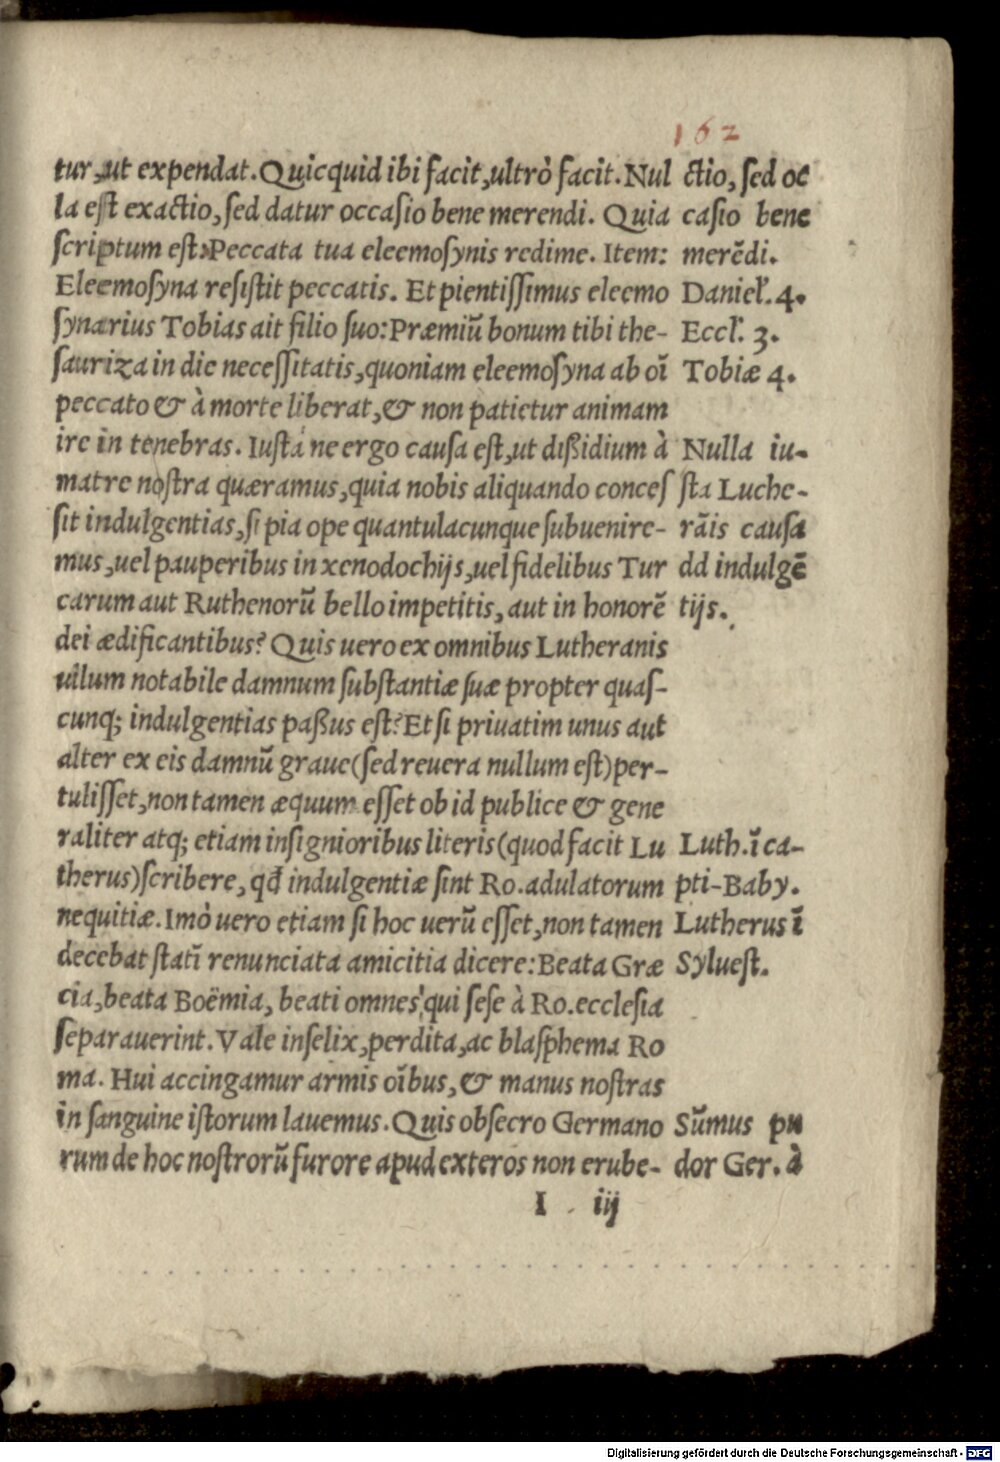 162
tur, ut expendat. Quicquid ibi facit, ultrò facit. Nul
la est exactio, sed datur occasio bene merendi. Quia
scriptum est: Peccata tua eleemosynis redime. Item:
Eleemosyna resistit peccatis. Et pientissimus eleemo
synarius Tobias ait filio suo: Præmiũ bonum tibi the-
sauriza in die necessitatis, quoniam eleemosyna ab oĩ
peccato & à morte liberat, & non patietur animam
ire in tenebras. Iusta ne ergo causa est, ut dißidium à
matre nostra quæramus, quia nobis aliquando conces
sit indulgentias, si pia ope quantulacunque subuenire-
mus, uel pauperibus in xenodochijs, uel fidelibus Tur
carum aut Ruthenorũ bello impetitis, aut in honorẽ
dei ædificantibus? Quis uero ex omnibus Lutheranis
ullum notabile damnum substantiæ suæ propter quas-
cunq; indulgentias paßus est? Et si priuatim unus aut
alter ex eis damnũ graue (sed reuera nullum est) per-
tulisset, non tamen æquum esset ob id publice & gene
raliter atq; etiam insignioribus literis (quod facit Lu
therus) scribere, qđ indulgentiæ sint Ro. adulatorum
nequitiæ. Imò uero etiam si hoc uerũ esset, non tamen
decebat statĩ renunciata amicitia dicere: Beata Græ
cia, beata Boëmia, beati omnes, qui sese à Ro. ecclesia
separauerint. Vale infelix, perdita, ac blasphema Ro
ma. Hui accingamur armis oĩbus, & manus nostras
in sanguine istorum lauemus. Quis obsecro Germano
rum de hoc nostrorũ furore apud exteros non erube-
I iij
ctio, sed oc
casio bene
merẽdi.
Daniel. 4.
Eccl. 3.
Tobiæ 4.
Nulla iu-
sta Luthe-
rãis causa
dd indulgẽ
tijs.
Luth. ĩ ca-
pti-Baby.
Lutherus ĩ
Syluest.
Sũmus pu
dor Ger. à
Digitalisierung gefördert durch die Deutsche Forschungsgemeinschaft - DFG